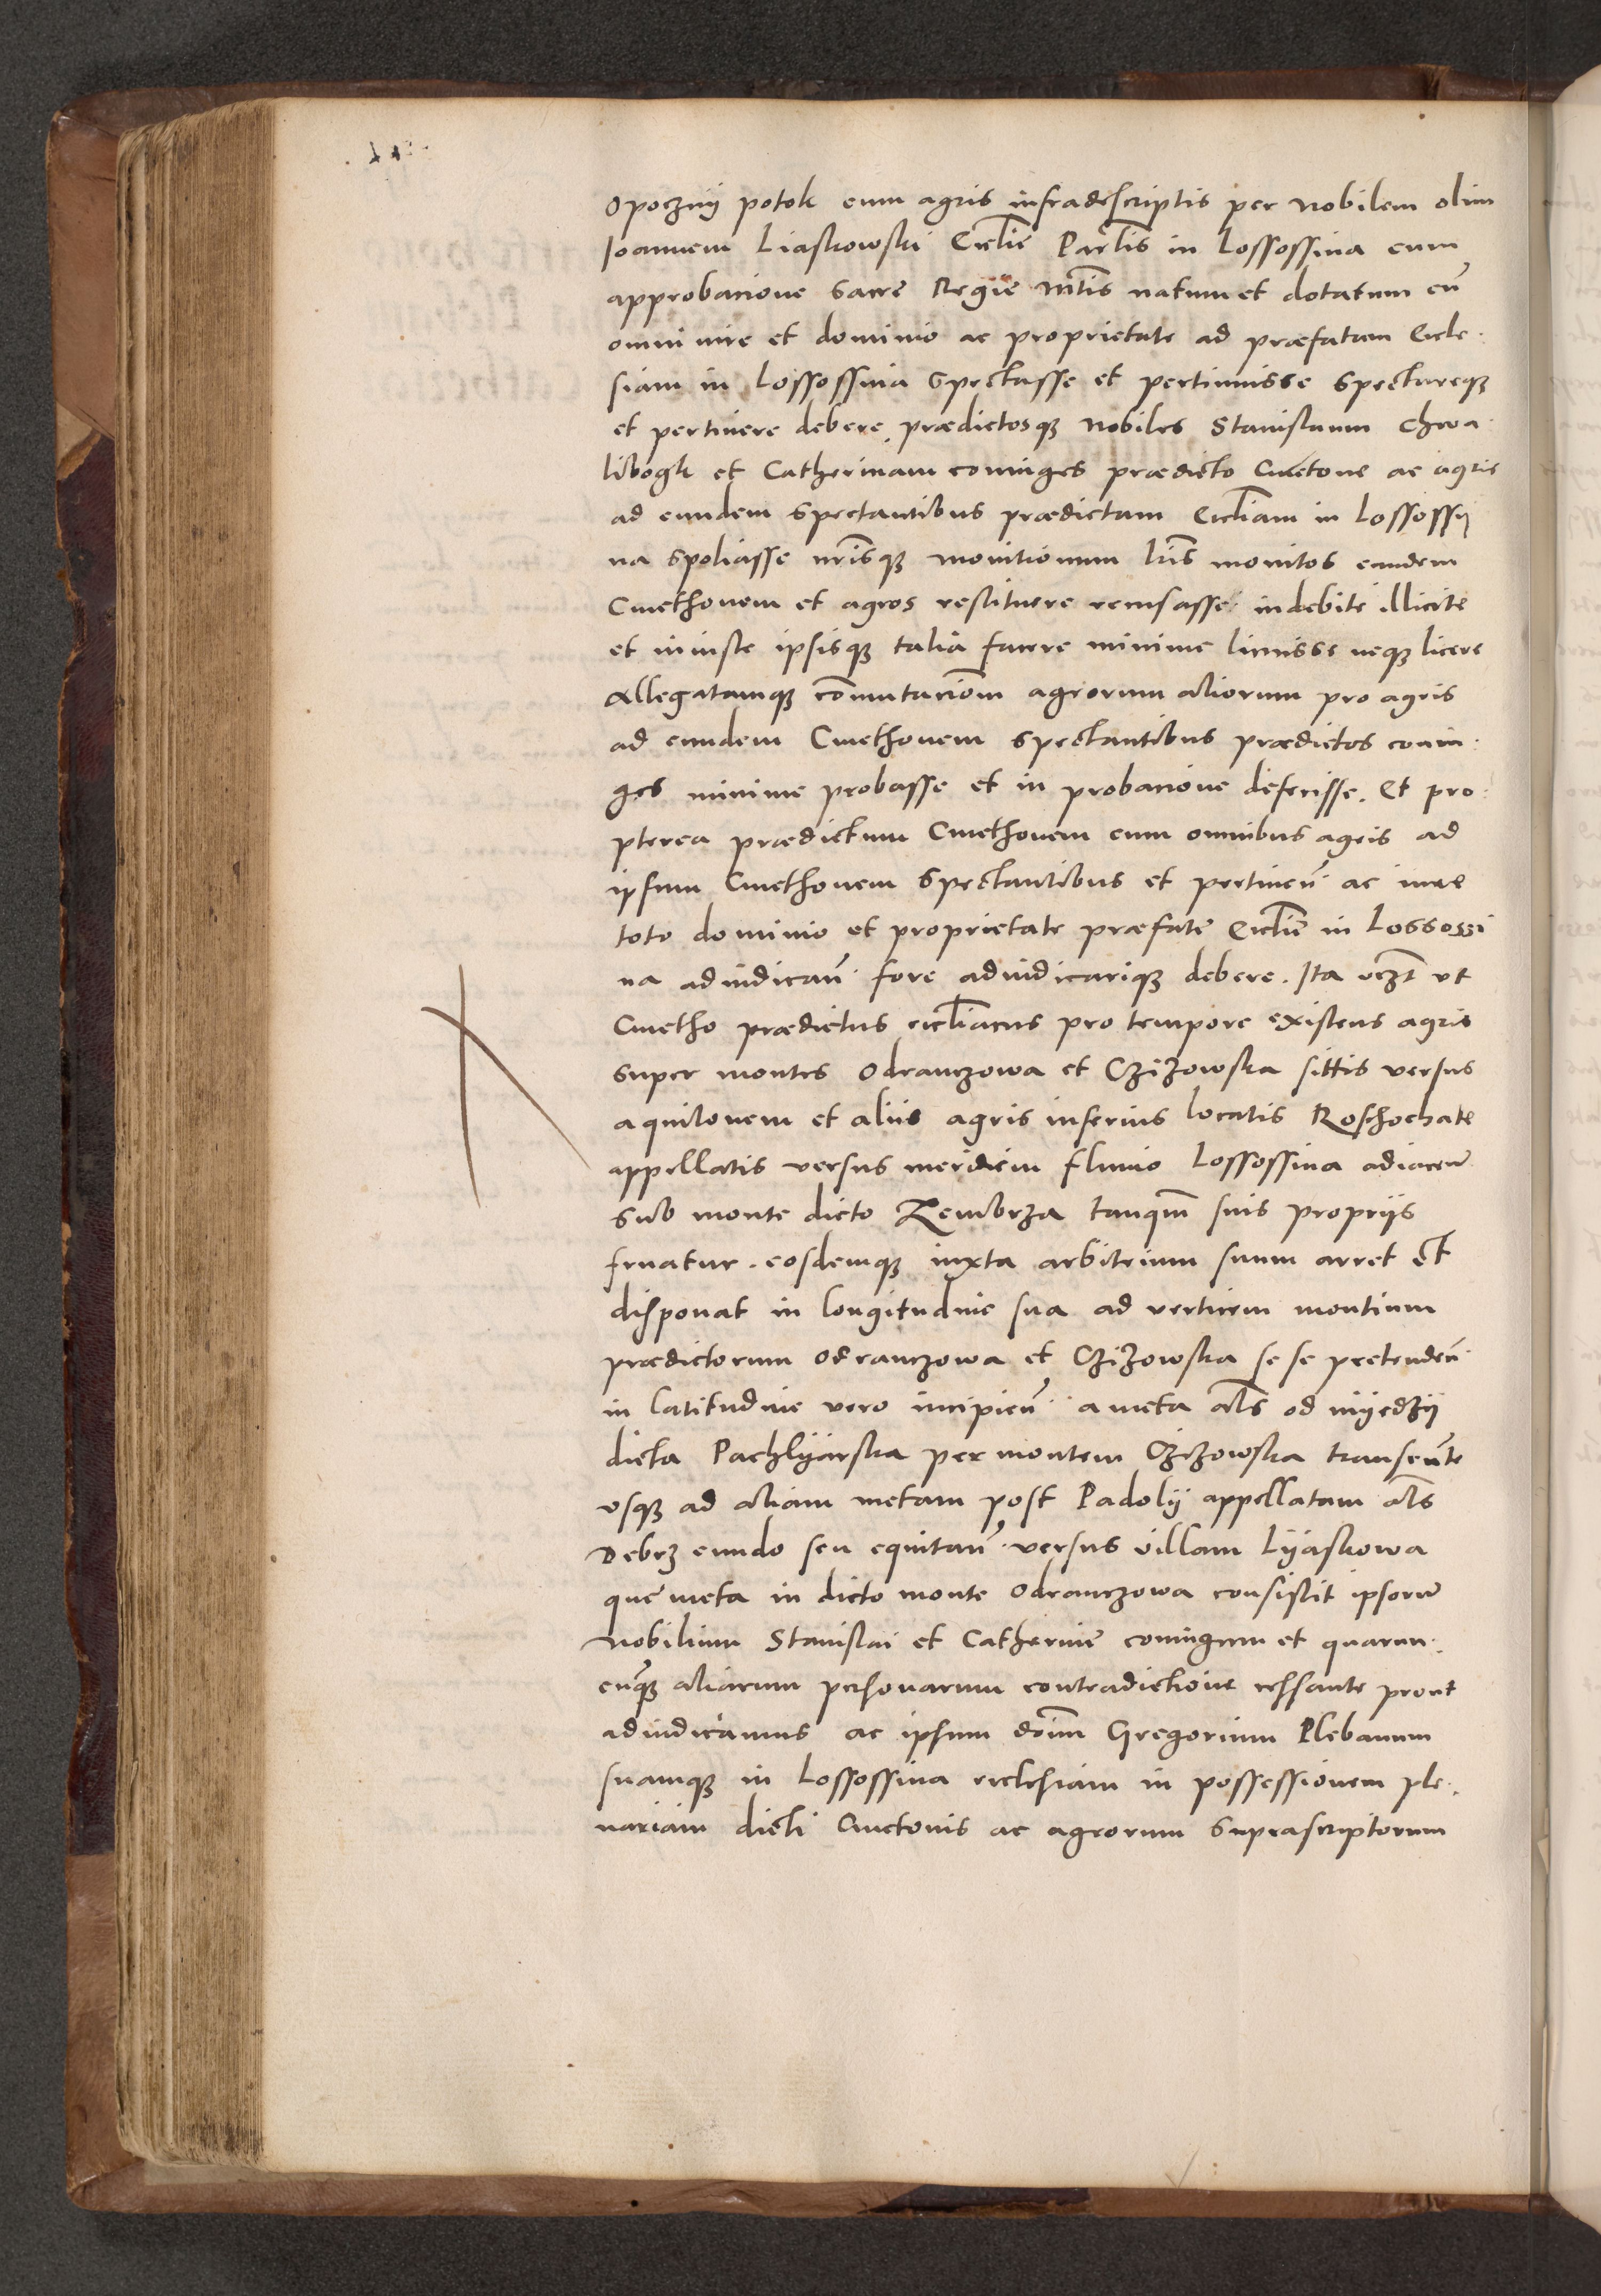 Opocznÿ potok cum agris infradescriptis per Nobilem olim
Ioannem Liaskowski Ecclīe Parlīs in Lossossina cum
approbacione Sacre Regie Mtīs natum et dotatum cū
omni iure et dominio ac proprietate ad præfatam Eccle
siam in Lossossina spectasse et pertinuisse spectareq;
et pertinere debere, prædictosq; Nobiles Stanislaum Chwa
libogk et Catherinam coniuges prædicto Cmetone ac agris
ad eundem spectantibus prædictam Ecclīam in Lossossÿ
na spoliasse nrīsq; monitionum lrīs monitos eundem
Cmethonem et agros restituere recusasse indebite illicite
et iniuste ipsisq; talia facere minime licuisse neq; licere
Allegatamq; cōmutaciōem agrorum aliorum pro agris
ad eundem Cmethonem spectantibus prædictos coniu
ges minime probasse et in probacione defecisse. Et pro
pterea prædictum Cmethonem cum omnibus agris ad
ipsum Cmethonem spectantibus et pertinēn ac iure
toto dominio et proprietate præfate Ecclīe in Lossossi
na adiudicān fore adiudicariq; debere. Ita vczt vt
Cmetho prædictus ecclīacus pro tempore existens agris
super montes Odranczowa et Cziżowska sittis versus
aquilonem et aliis agris inferius locatis Roschochate
appellatis versus meridiem fluuio Lossossina adiacēn
sub monte dicto Zembrza tanqm̄ suis propriis
fruatur. eosdemq; iuxta arbitrium suum arret Et
disponat in longitudine sua ad verticem montium
prædictorum Odranczowa et Cziżowska se se pretendēn
in latitudine vero incipiēn a meta als od mÿedzÿ
dicta Pachlÿarska per montem Cziżowska transeūte
vsq; ad aliam metam post Padolÿ appellatam als
Debrz eundo seu equitān versus villam Lÿaskowa
que meta in dicto monte Odranczowa consistit ipsorū
Nobilium Stanislai et Catherine coniugum et quarun
cunq; aliarum personarum contradictione cessante prout
adiudicamus ac ipsum dnīm Gregorium Plebanum
suamq; in Lossossina ecclesiam in possessionem ple
nariam dicti Cmetonis ac agrorum suprascriptorum